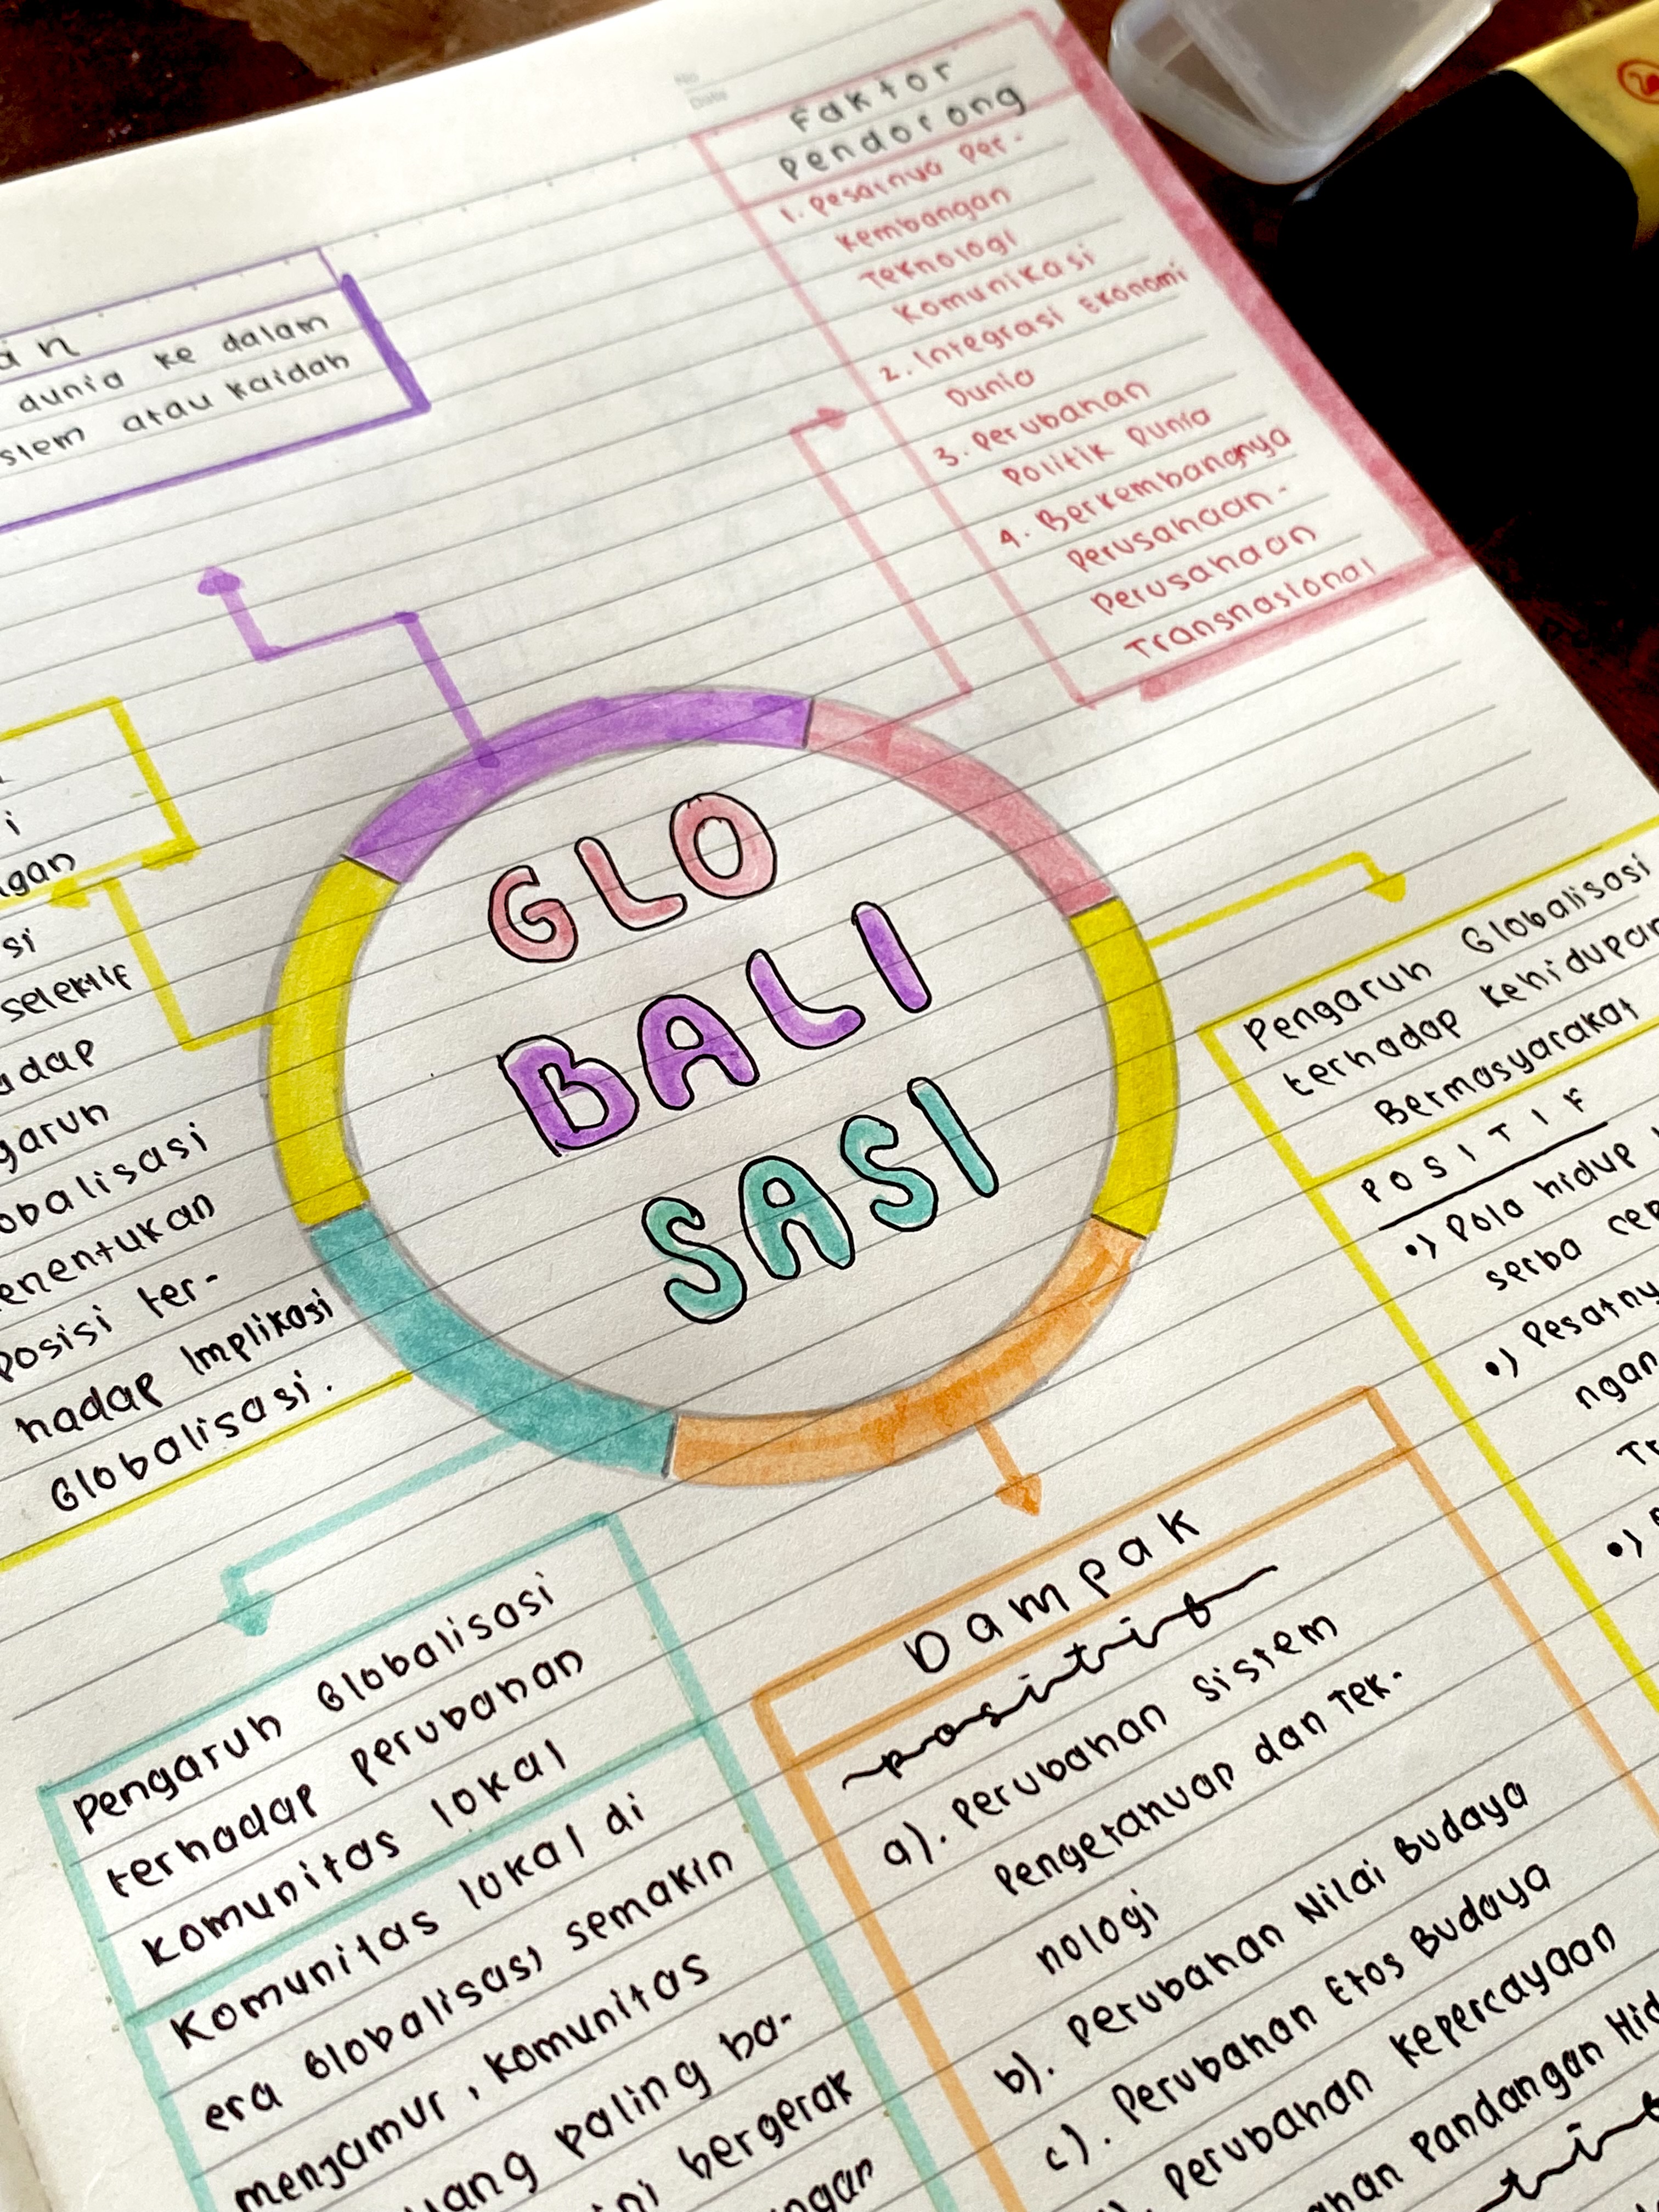 No
Date
Faktor
Pendorong
1. Pesatnya Per-
kembangan
Teknologi
Komunikasi
2. Integrasi Ekonomi
Dunia
3. Perubahan
Politik Dunia
4. Berkembangnya
Perusahaan-
Perusahaan
Transnasional
an
dunia ke dalam
stem atau kaidah
i
gan
si
selektif
adap
garuh
obalisasi
enentukan
posisi ter-
hadap Implikasi
Globalisasi.
GLO
BALI
SASI
Pengaruh Globalisasi
terhadap kehidupan
Bermasyarakat
POSITIF
•) Pola hidup
serba cep
•) Pesatny
ngan
Tr
•)
Pengaruh Globalisasi
terhadap perubahan
komunitas lokal
Komunitas lokal di
era Globalisasi semakin
menjamur, komunitas
yang paling ba-
ini bergerak
ngan
Dampak
positif
a). Perubahan Sistem
Pengetahuap dan Tek-
nologi
b). Perubahan Nilai Budaya
c). Perubahan Etos Budaya
Perubahan kepercayaan
han Pandangan Hid